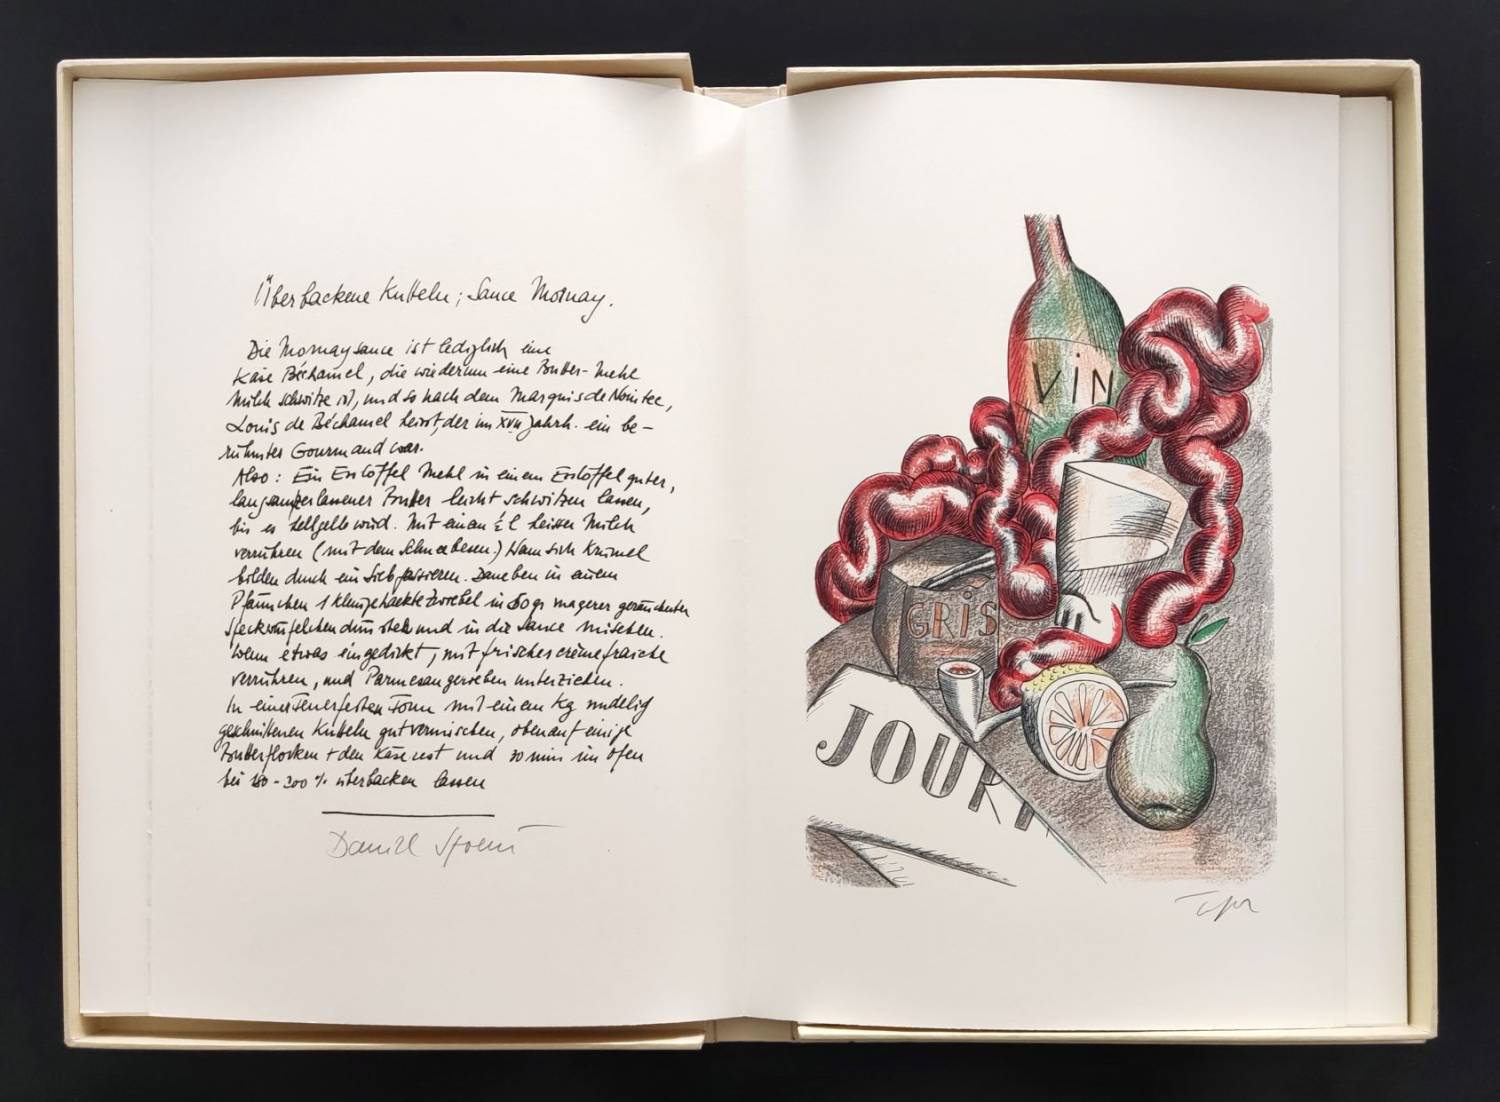 Überbackene Kutteln; Sauce Mornay.
Die Mornaysauce ist lediglich eine
Käse Béchamel, die wiederum eine Butter-Mehl
Milch schwitze ist, und so nach dem Marquis de Nointee,
Louis de Béchamel heisst, der im XVII Jahrh. ein be-
rühmter Gourmand war.
Also: Ein Esslöffel Mehl in einem Esslöffel guter,
langsam zerlassener Butter leicht schwitzen lassen,
bis es hellgelb wird. Mit einem ½ l heisser Milch
verrühren (mit dem Schneebesen.) Wenn sich Krümel
bilden durch ein Sieb passieren. Daneben in einem
Pfännchen 1 kleingehackte Zwiebel in 50 gr magerer geräucherter
Speckwürfelchen dünsten und in die Sauce mischen.
Wenn etwas eingedickt, mit frischer crème fraiche
verrühren, und Parmesan gerieben unterziehen.
In einer feuerfesten Form mit einem Kg nudelig
geschnittenen Kutteln gut vermischen, obenauf einige
Butterflocken + den Käse rest und 30 min im Ofen
bei 180-200 % überbacken lassen
Daniel Spoerri
VIN
GRIS
JOUR